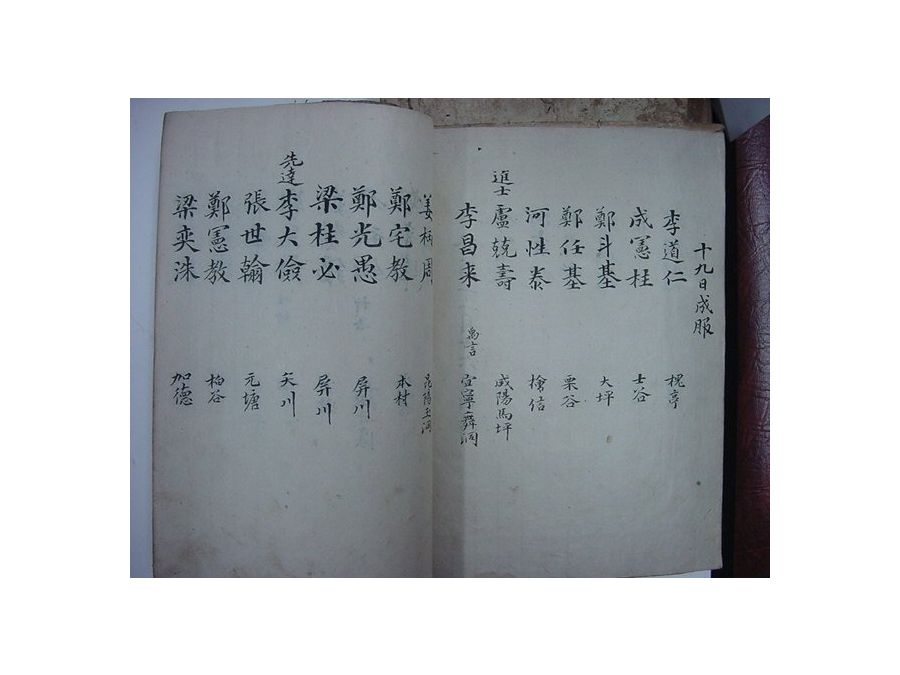 十九日成服
李道仁 槐亭
成憲桂 士谷
鄭斗基 大坪
鄭任基 栗谷
河性泰 檜信
進士 盧兢壽 咸陽馬坪
李昌来 宜寧舞洞
姜柄周 昆陽玉洞
鄭宅教 本村
鄭光愚 屏川
梁桂必 屏川
先達 李大儉 矢川
張世翰 元塘
鄭憲教 栢谷
梁奕洙 加德